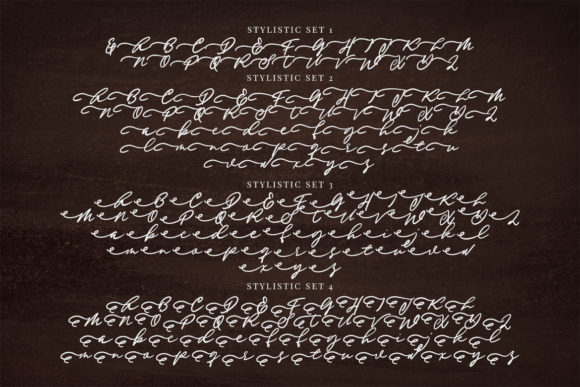 STYLISTIC SET 1
A B C D E F G H I J K L M
N O P Q R S T U V W X Y Z
STYLISTIC SET 2
A B C D E F G H I J K L M
N O P Q R S T U V W X Y Z
a b c d e f g h i j k
l m n o p q r s t u
v w x y z
STYLISTIC SET 3
A B C D E F G H I J K L
M N O P Q R S T U V W X Y Z
a b c d e f g h i j k l
m n o p q r s t u v w
x y z
STYLISTIC SET 4
A B C D E F G H I J K L
M N O P Q R S T U V W X Y Z
a b c d e f g h i j k l
m n o p q r s t u v w x y z